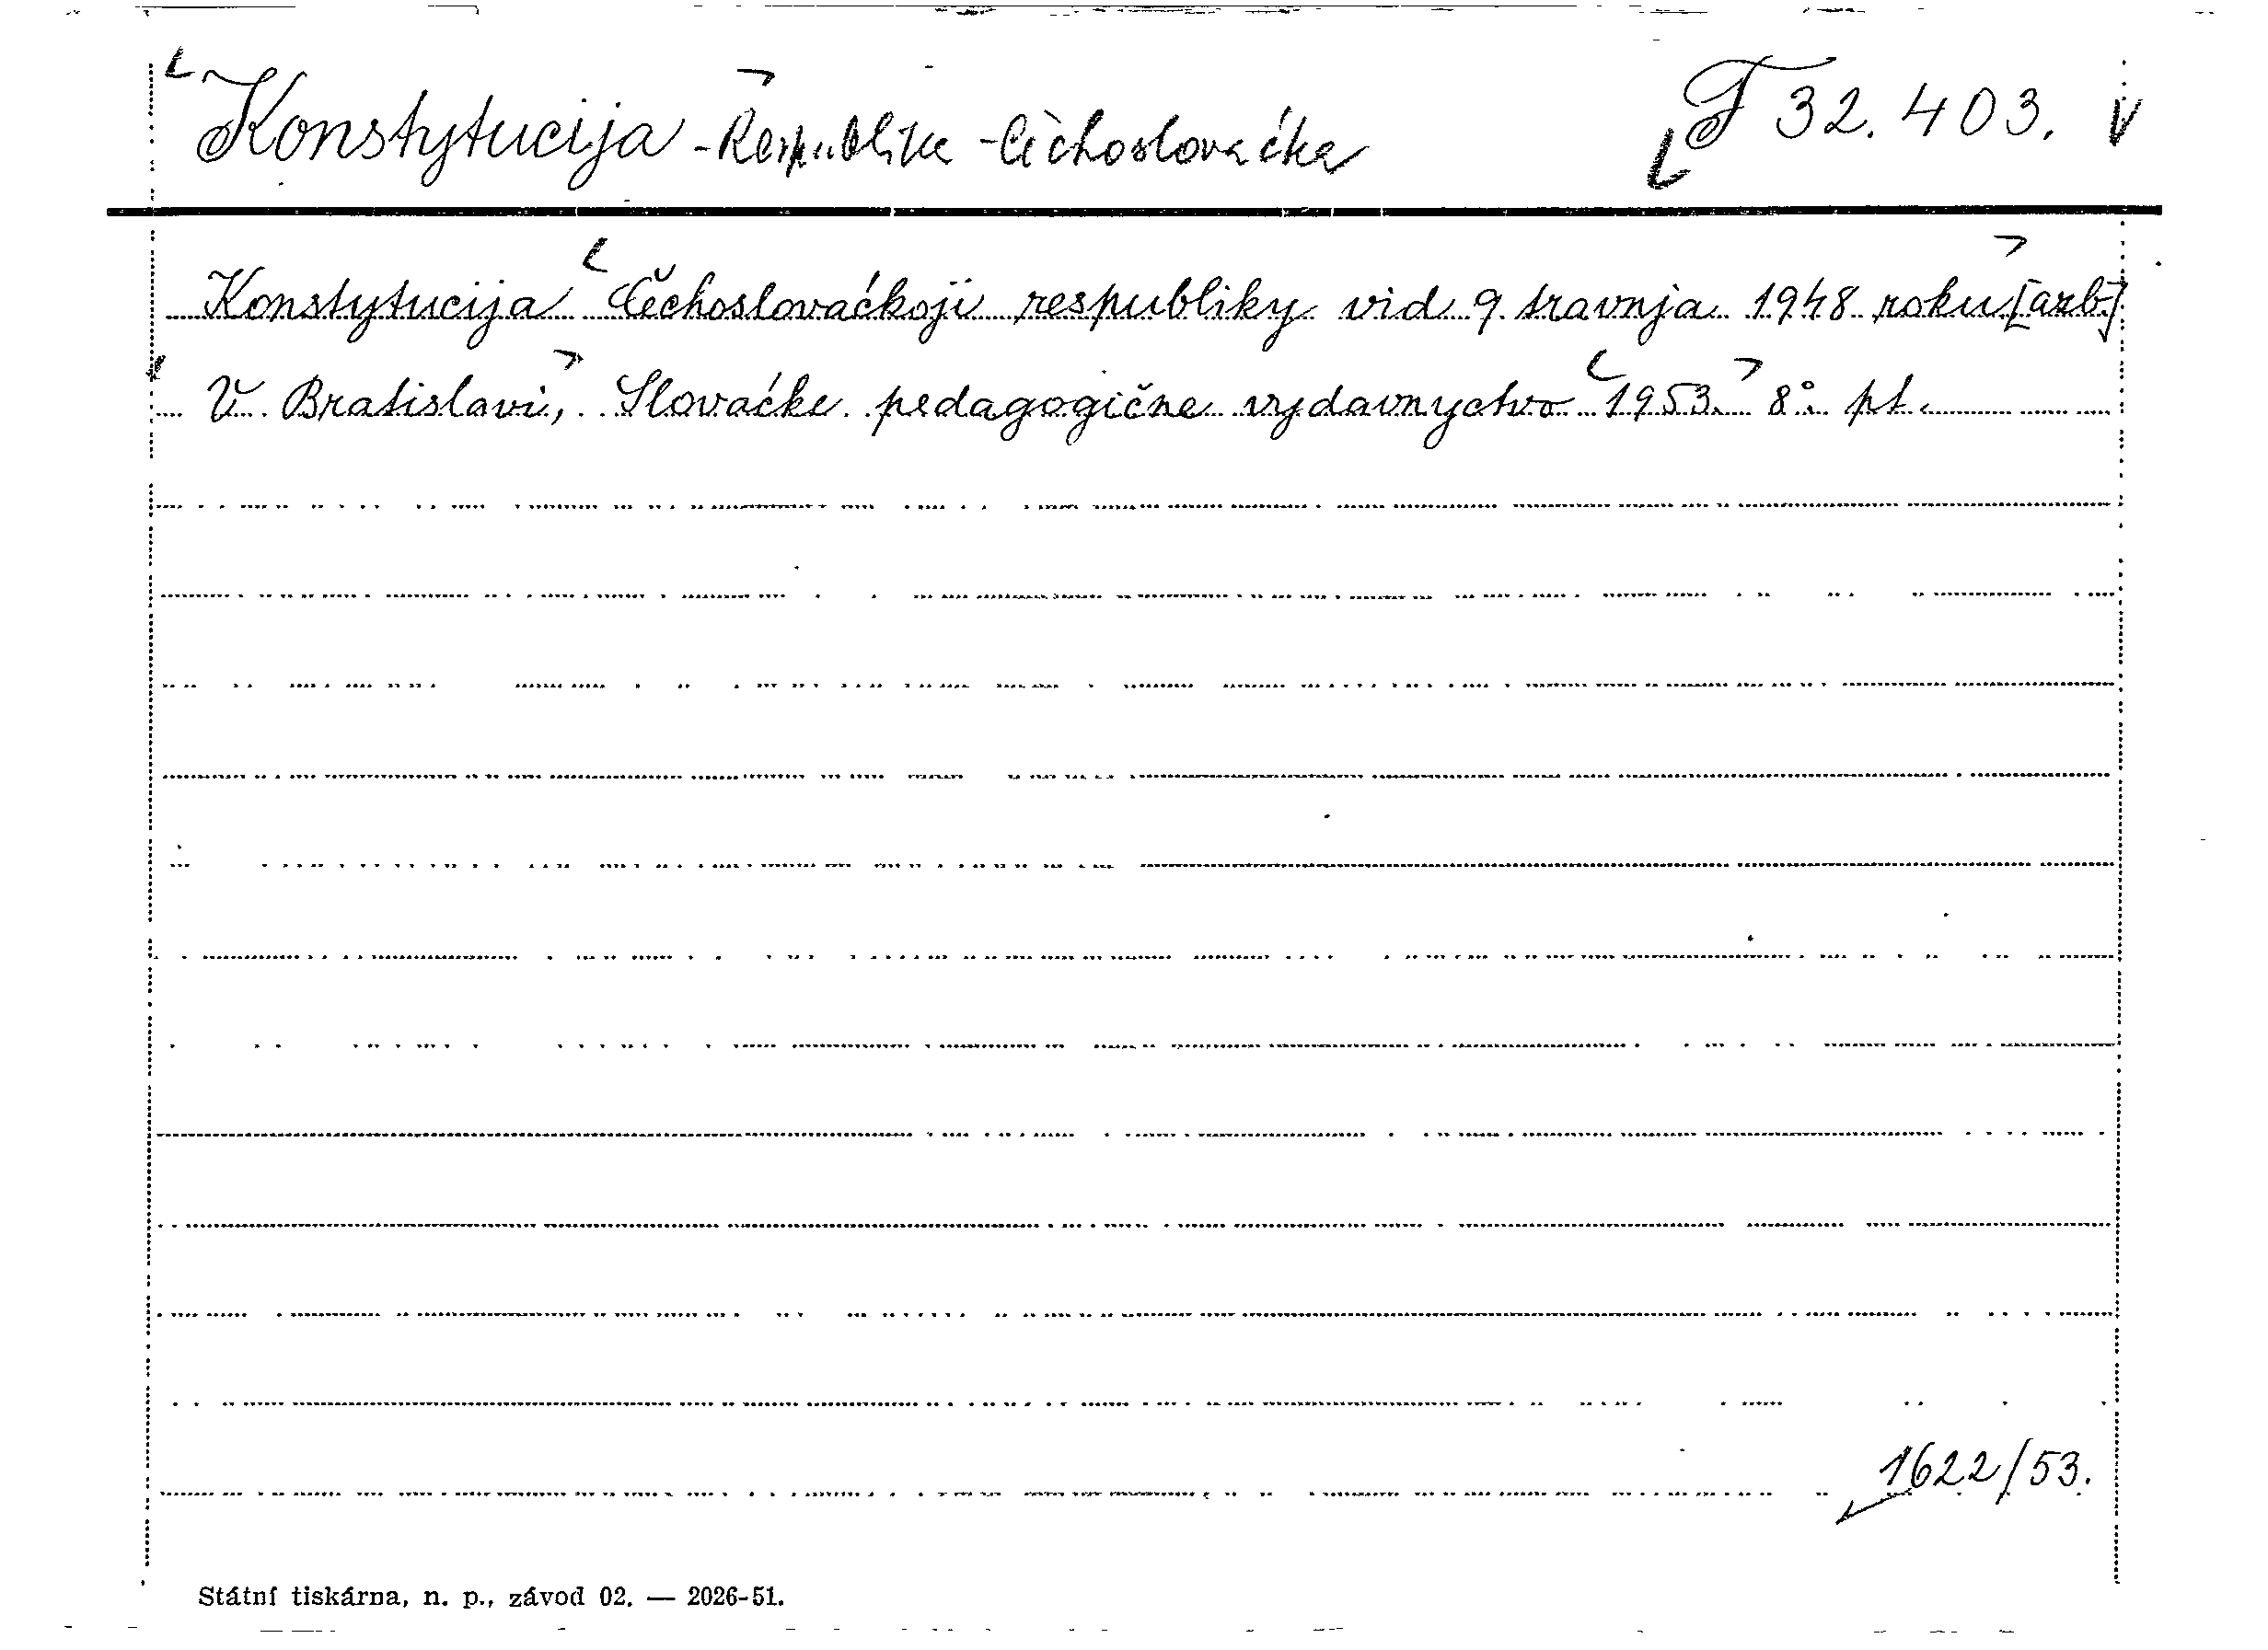 Konstytucija - Respublika - Čechoslovaćka F 32.403.
Konstytucija Čechoslovaćkoji respubliky vid 9 travnja 1948 roku [azb.]
V Bratislavi, Slovaćke pedagogične vydavnyctvo 1953. 8°. pt.
1622/53.
Státní tiskárna, n. p., závod 02. — 2026-51.